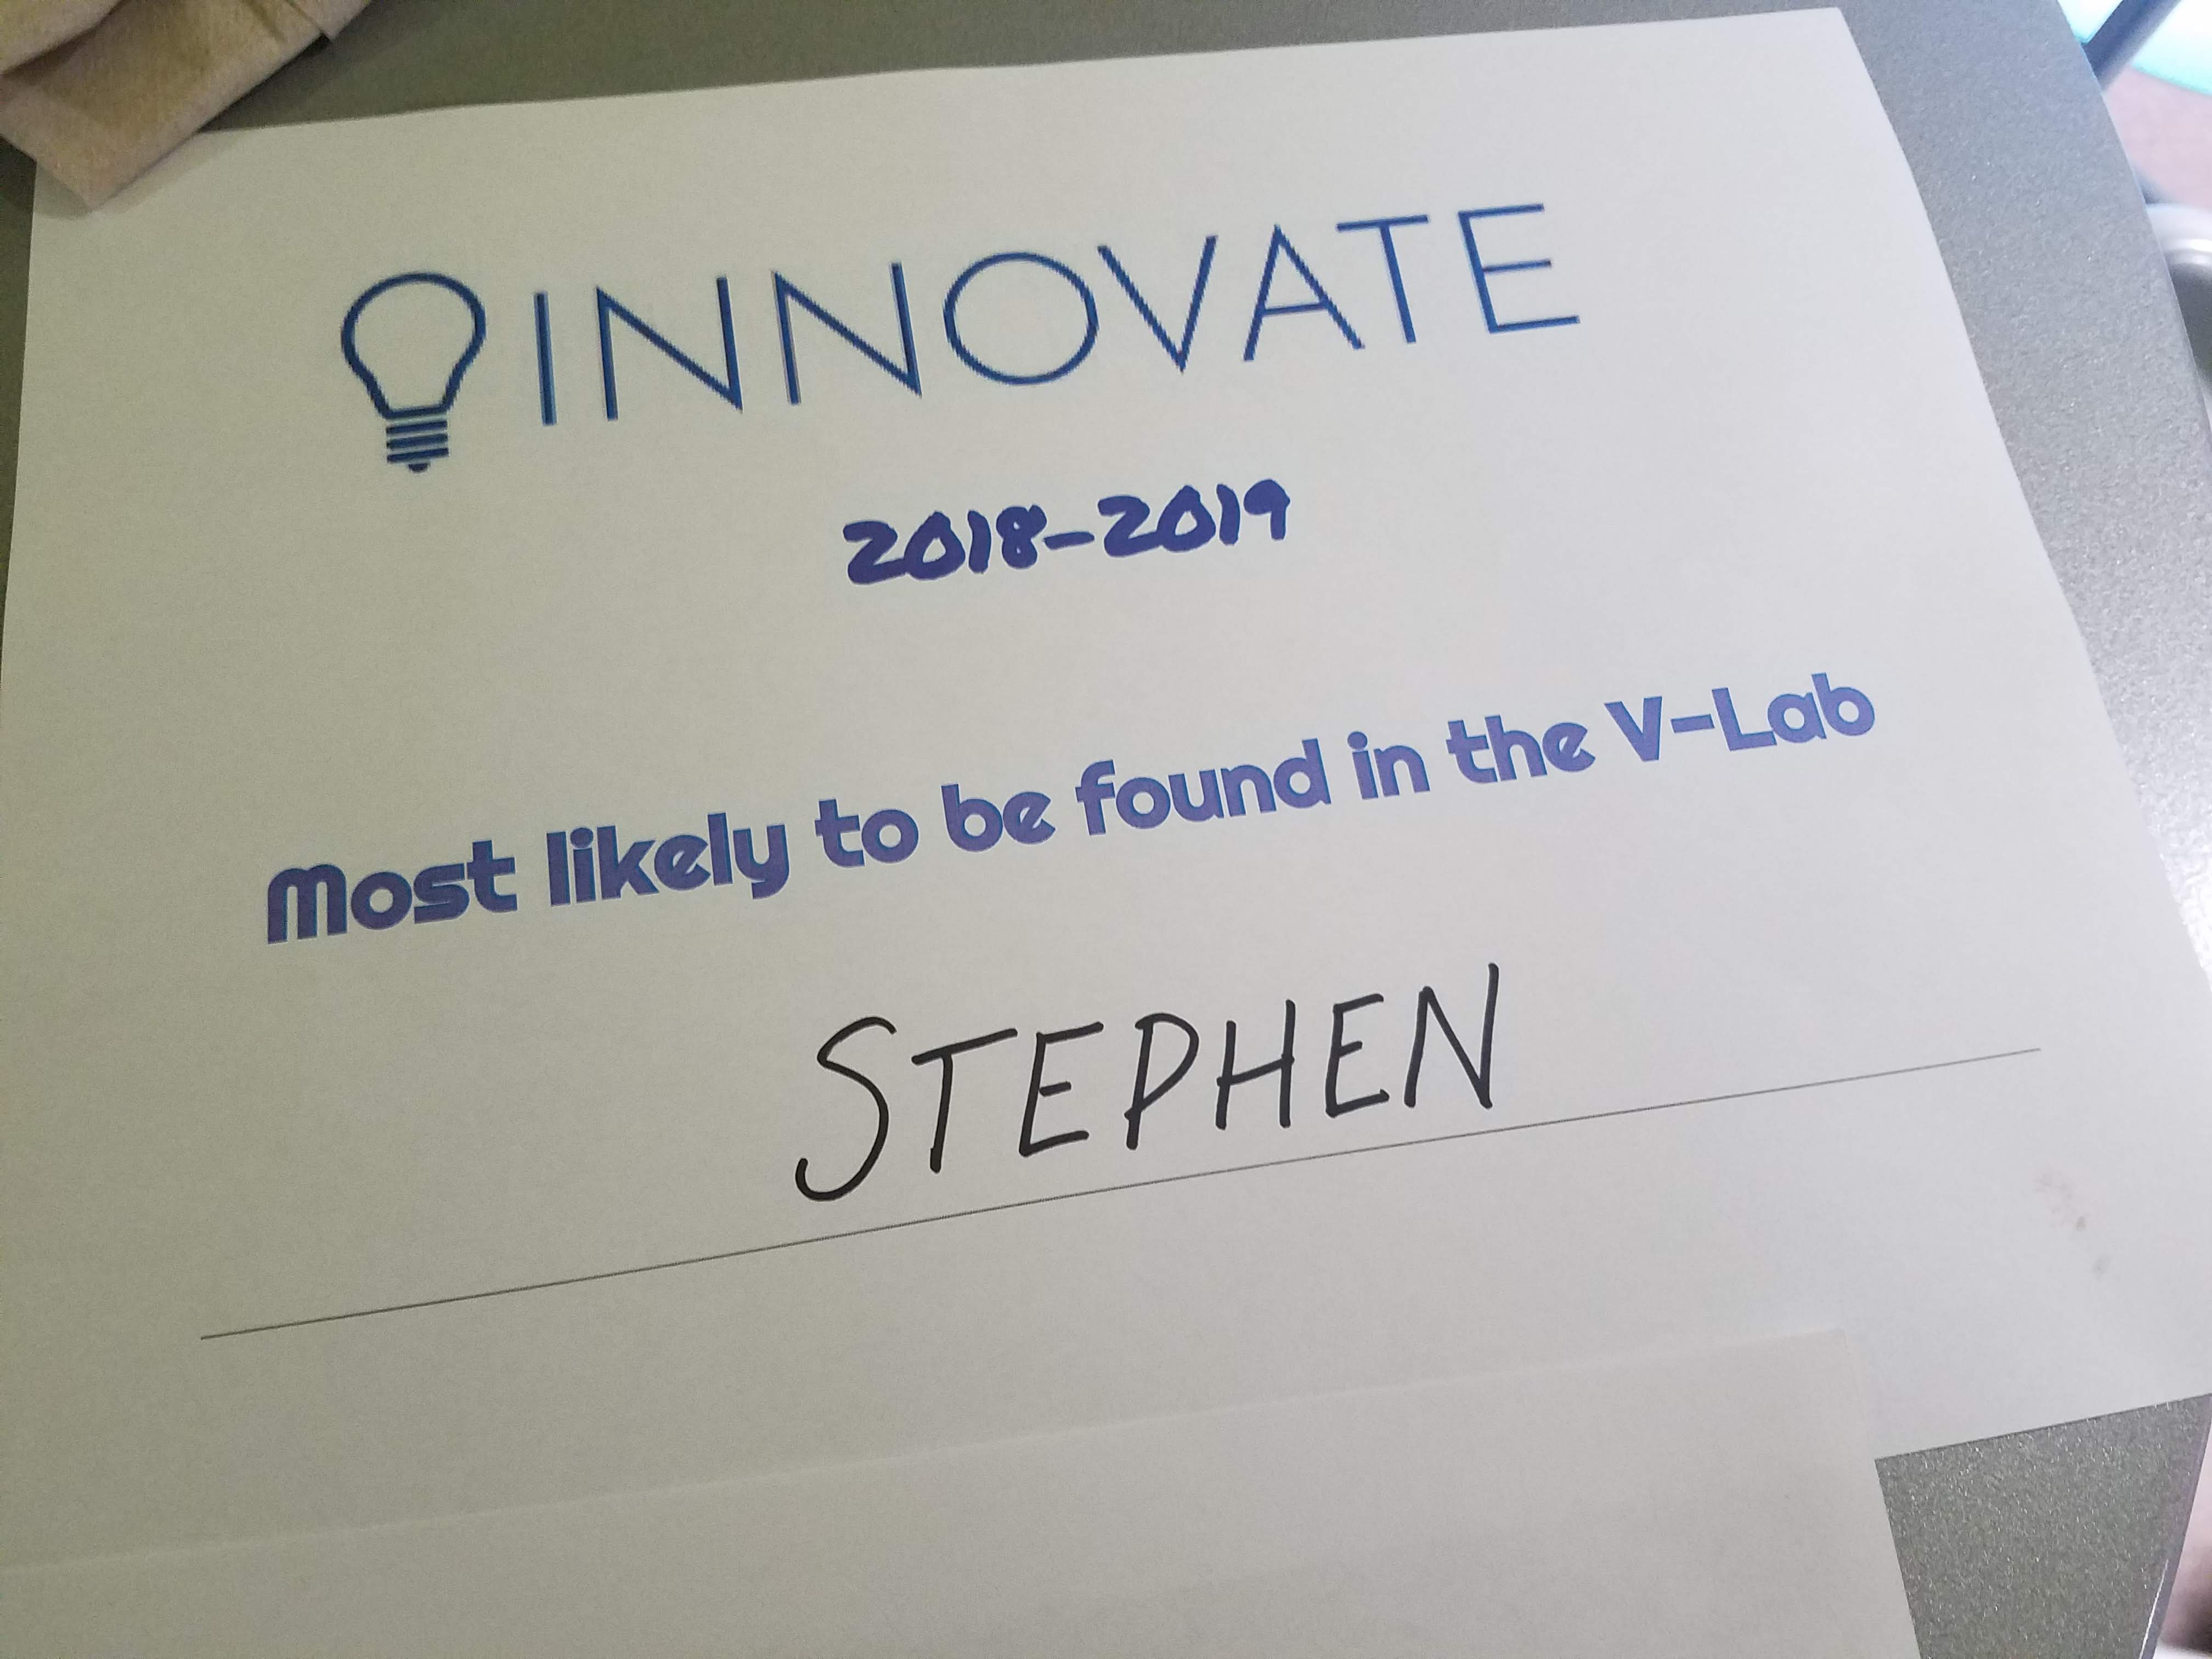 INNOVATE
2018-2019
Most likely to be found in the V-Lab
STEPHEN